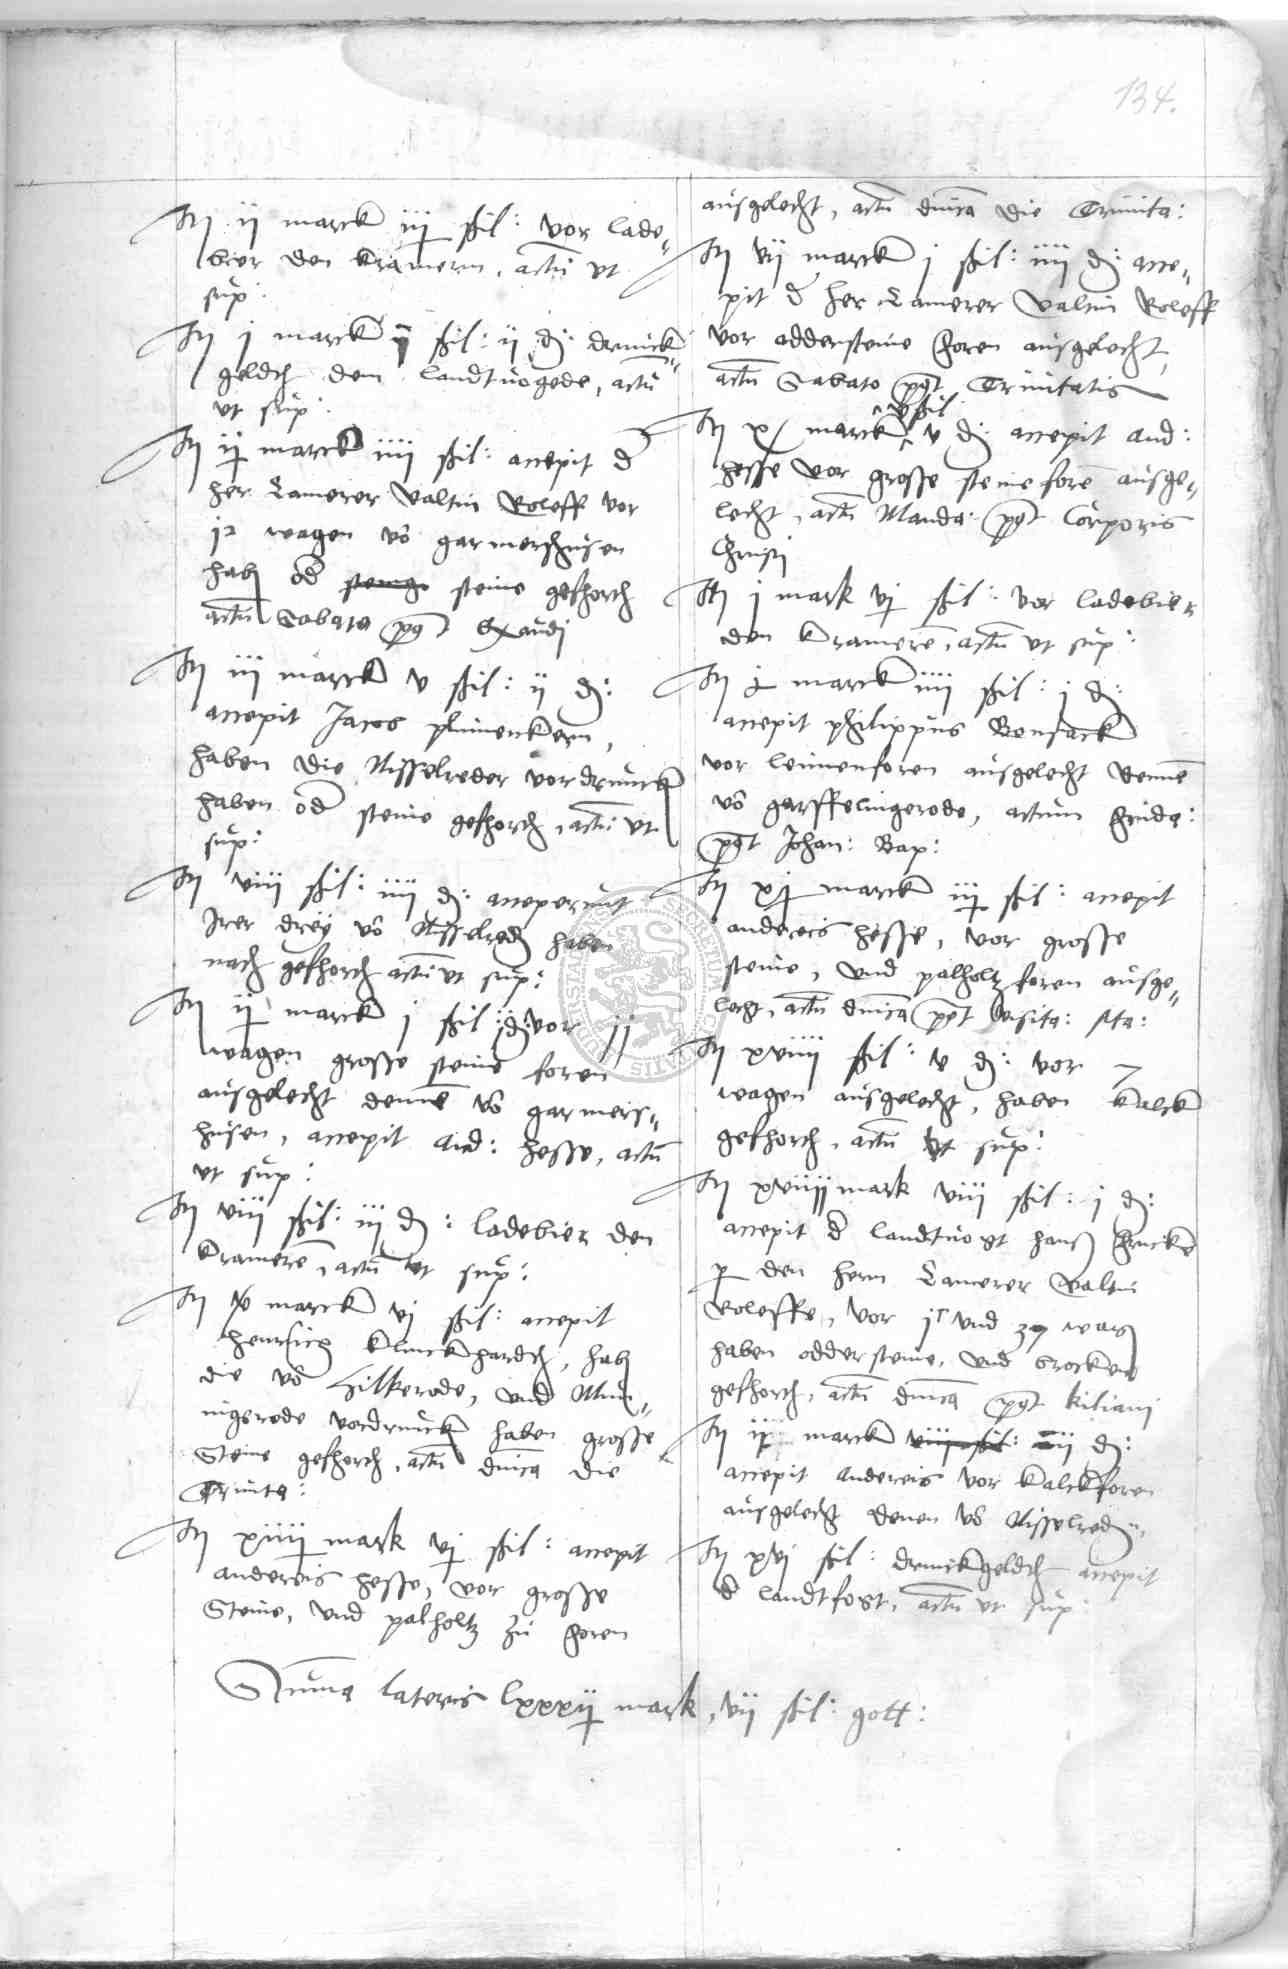 134.
It ij marck iij ßil: vor lade„
bier den kramern, actu ut
sup:
It j marck ij ßil: ij d: drinck„
geldt dem landtuogede, actu
ut sup:
It ij marck iiij ßil: accepit d
her Camerer Valtin Roleff vor
12 wagen vo garmershusen
hab od steine gefhorth
actu Sabato post Exaudj
It iij marck v ßil: ij d:
accepit Jacob
haben die Nisselreder vordrunck
haben od steine gefhorth, actu ut
sup:
It viij ßil: iiij d: acceperunt
Irer drey vo Nisselred haben
noch gefhorth actu ut sup:
It ij marck j ßil: d: vor 11
wagen grosse steine foren
ausgelecht denne vo garmers„
husen, accepit And: Hesse, actu
ut sup:
It viij ßil: iij d: ladebier den
kramere, actu ut sup:
It marck vj ßil: accepit
Henrich Klinckhardt, hab
die vo Hilkerode, und Min„
nigerode vordrunck haben grosse
Steine gefhorth, actu dnica die
Trinita:
It xiiij mark vj ßil: accepit
andereis Hesse, vor grosse
Steine, und palholtz zu foren
ausgelecht, actu dnica die Trinita:
It vij marck j ßil: iiij d: acce„
pit d her Camerer Valtin Roleff
vor oddersteine foren ausgelecht,
actu Sabato post Trinitatis
v ßil
It x marck v d: accepit And:
Hesse vor grosse steine fore ausge„
lecht, actu Manda: post Corporis
Christi
It j mark vj ßil: vor ladebier
den kramere, actu ut sup:
It marck iiij ßil: j d:
accepit Philippus Bensack
vor leimenforen ausgelecht denne
vo gerffelingerode, actum frida:
post Johan: Bap:
It xj marck iij ßil: accepit
andereis Hesse, vor grosse
steine, und palholtz foren ausge„
lecht, actu dnica post visita: Ma:
It xviiij ßil: v d: vor 7
wagen ausgelecht, haben kalck
gefhorth, actu ut sup:
It xviiij mark viij ßil: j d:
accepit d landtuogt Hans
p den hern Camerer Valtin
Roleffe, vor und wag
haben oddersteine, und brocken
gefhorth, actu dnica post kiliani
It marck viij ßil: d:
accepit Andereis vor kalckforen
ausgelecht denen vo Nisselred
It xvj ßil: drinckgeldt accepit
d landtfogt, actu ut sup:
Suma lateris lxxxij mark, vij ßil: gott: